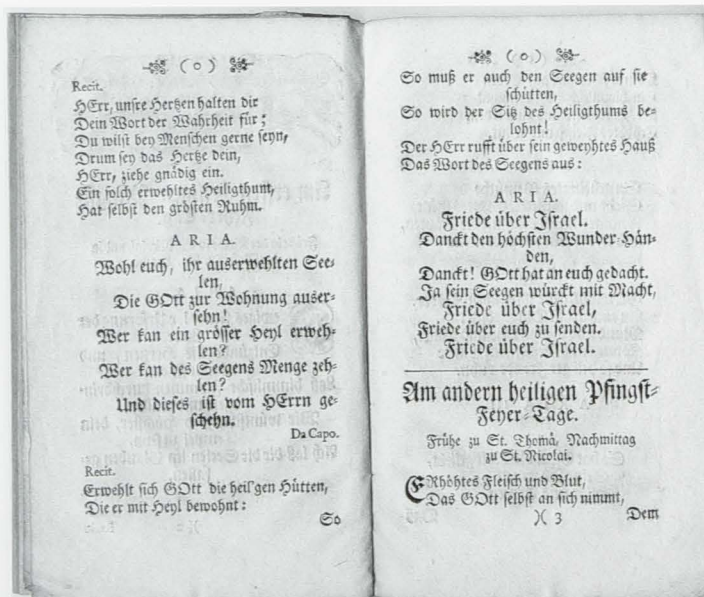 ( o )
Recit.
HErr, unsre Hertzen halten dir
Dein Wort der Wahrheit für;
Du wilst bey Menschen gerne seyn,
Drum sey das Hertze dein,
HErr, ziehe gnädig ein.
Ein solch erwehltes Heiligthum,
Hat selbst den grösten Ruhm.
ARIA.
Wohl euch, ihr auserwehlten See-
len,
Die GOtt zur Wohnung auser-
sehn!
Wer kan ein grösser Heyl erweh-
len?
Wer kan des Seegens Menge zeh-
len?
Und dieses ist vom HErrn ge-
schehn.
Da Capo.
Recit.
Erwehlt sich GOtt die heil'gen Hütten,
Die er mit Heyl bewohnt:
So
( o )
So muß er auch den Seegen auf sie
schütten,
So wird der Sitz des Heiligthums be-
lohnt!
Der HErr rufft über sein geweyhtes Hauß
Das Wort des Seegens aus:
ARIA.
Friede über Israel.
Danckt den höchsten Wunder-Hän-
den,
Danckt! GOtt hat an euch gedacht.
Ja sein Seegen würckt mit Macht,
Friede über Israel,
Friede über euch zu senden.
Friede über Israel.
Am andern heiligen Pfingst-
Feyer-Tage.
Frühe zu St. Thomä, Nachmittag
zu St. Nicolai.
ERhöhtes Fleisch und Blut,
Das GOtt selbst an sich nimmt,
)( 3 Dem